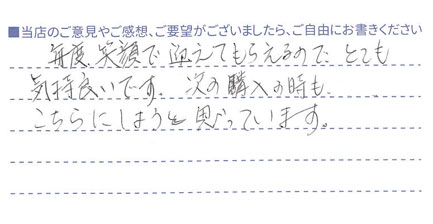 ■当店のご意見やご感想、ご要望がございましたら、ご自由にお書きください
毎度、笑顔で迎えてもらえるので、とても
気持良いです。次の購入の時も、
こちらにしようと思っています。